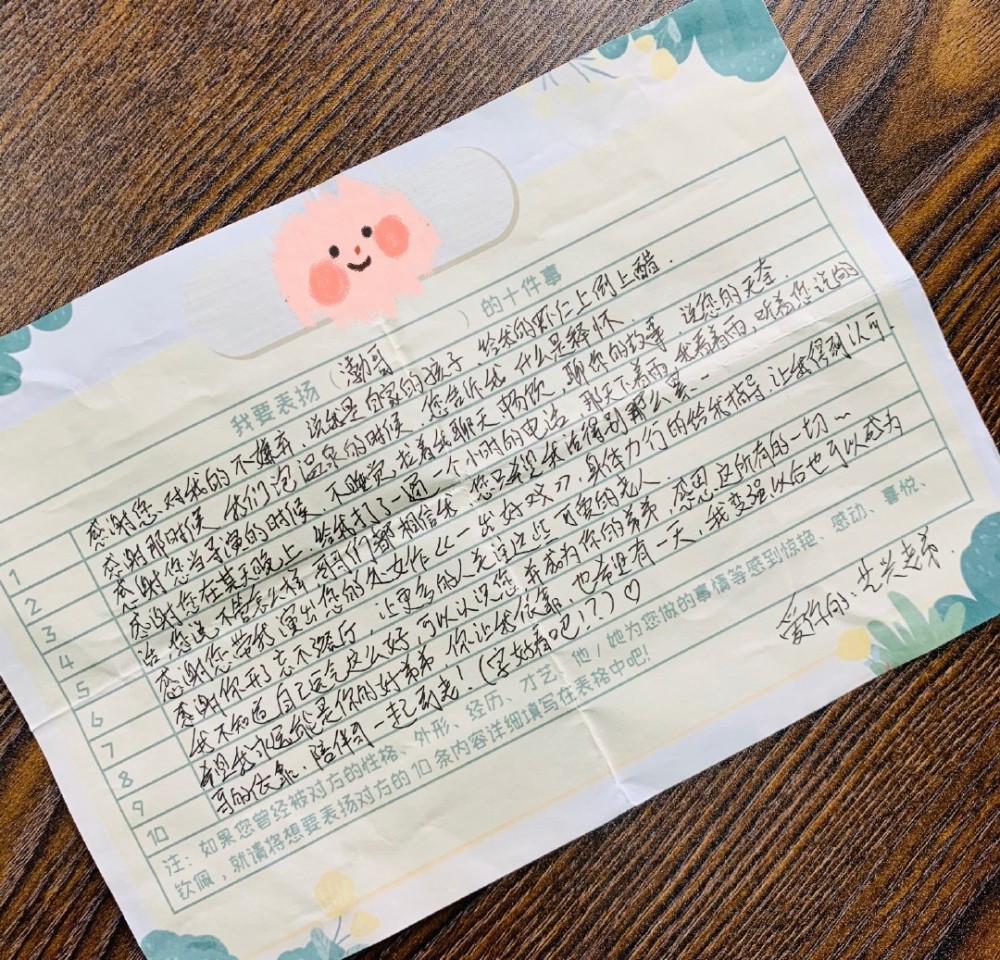 我要表扬（渤哥）的十件事
1 感谢您对我的不嫌弃，说我是自家的孩子，给我的虾仁上倒上醋.
2 感谢那时候我们泡温泉的时候，您告诉我什么是释怀.
3 感谢您当导演的时候，不睡觉，拉着我聊天，畅饮，聊你的故事，说您的天奎.
4 感谢您在某天晚上，给我打了一通一个小时的电话，那天下着雨，我看着雨，听着您说的
5 话，您说不管怎么样，哥们都相信我，您只希望我活得别那么累…
6 感谢您带我演出您的处女作《一出好戏》，身体力行的给我指导，让我得到认可.
7 感谢你开了忘不了餐厅，让更多的人关注这些可爱的老人.
8 我不知道自己运气这么好，可以认识您，并成为你的弟弟，感恩这所有的一切～
9 但我永远都是你的好弟弟，你让我依靠，也希望有一天，我变强以后也可以成为
10 哥的依靠，陪伴哥一起到老！（字好看吧！？）♡
注：如果您曾经被对方的性格、外形、经历、才艺、他/她为您做的事情等感到惊艳、感动、喜悦、
钦佩，就请将想要表扬对方的10条内容详细填写在表格中吧!
爱你的：艺兴老弟.